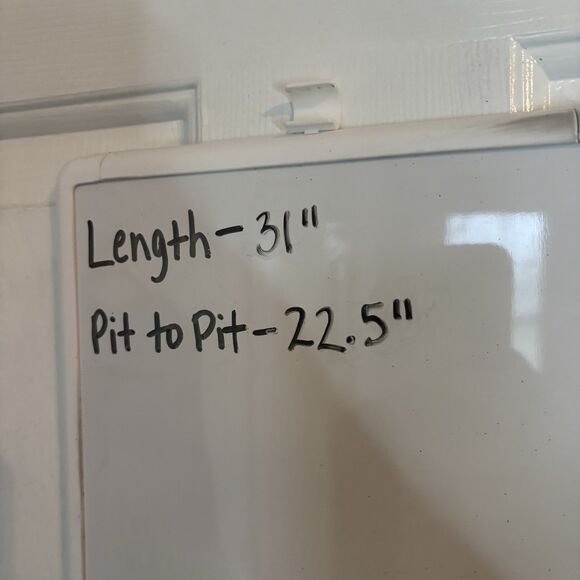 Length - 31"
Pit to Pit - 22.5"